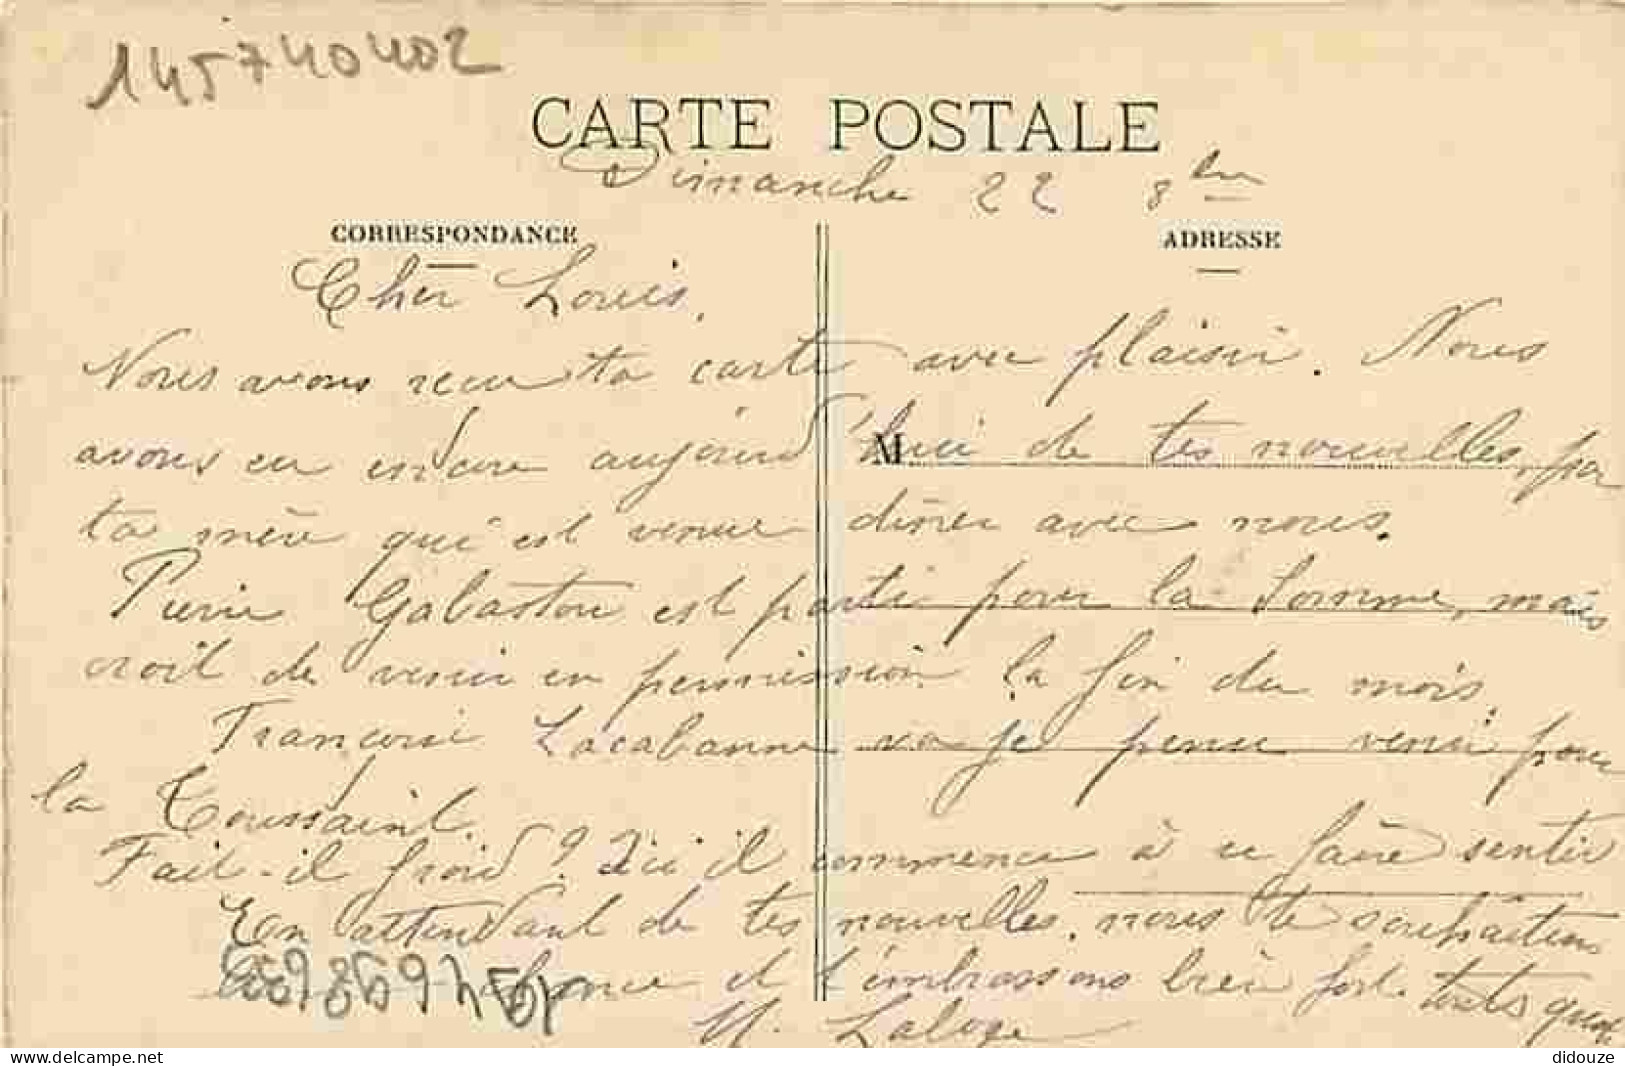 145740402
CARTE POSTALE
Dimanche 22 8bre
CORRESPONDANCE
ADRESSE
Cher Louis,
Nous avons reçu ta carte avec plaisir. Nous
M
avons eu encore aujourd'hui de tes nouvelles, par
ta mère qui est venue diner avec nous.
Pierre Gabaston est parti pour la Somme, mais
croit de venir en permission la fin du mois.
François Lacabanne va je pense venir pour
la Toussaint.
Fait-il froid? Ici il commence à se faire sentir
En attendant de tes nouvelles, nous te souhaitons
chance et t'embrassons bien fort. tants que
M. Laloge
didouze